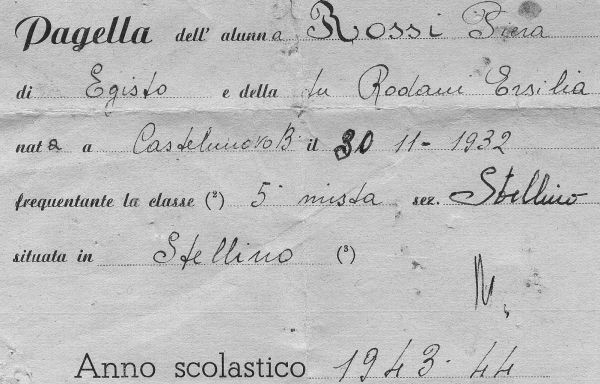 Pagella dell' alunna Rossi Piera
di Egisto e della fu Rodani Ersilia
nata a Castelnuovo B. il 30 11-1932
frequentante la classe (²) 5ª mista sez. Stellino
situata in Stellino (³)
N.
Anno scolastico 1943-44